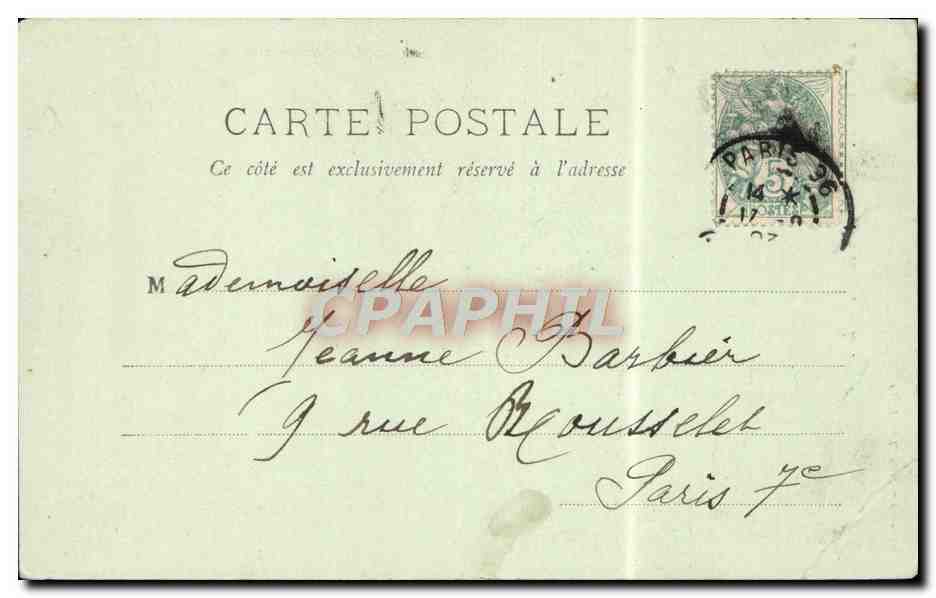 CARTE POSTALE
Ce côté est exclusivement réservé à l'adresse
PARIS 96
14 *
5
POSTES
Mademoiselle
CPAPHIL
Jeanne Barbier
9 rue Rousselet
Paris 7e